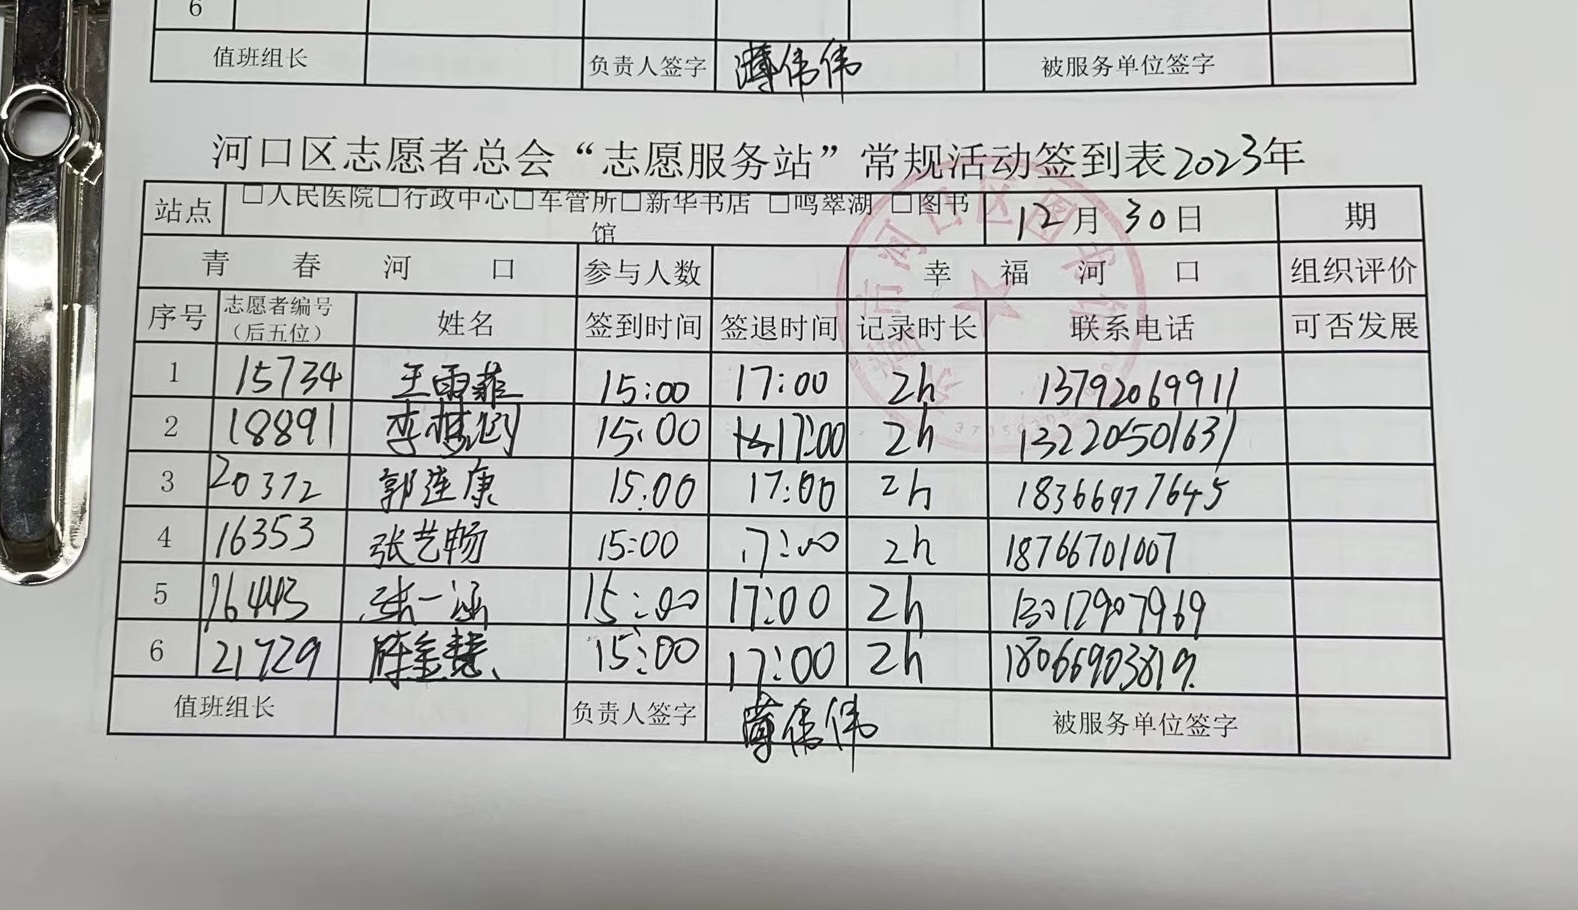 6
值班组长 负责人签字 薄伟伟 被服务单位签字
河口区志愿者总会“志愿服务站”常规活动签到表2023年
站点 □人民医院□行政中心□车管所□新华书店 □鸣翠湖 □图书馆 12月30日 期
青春河口 参与人数 幸福河口 组织评价
序号 志愿者编号(后五位) 姓名 签到时间 签退时间 记录时长 联系电话 可否发展
1 15734 王雨菲 15:00 17:00 2h 13792069911
2 18891 李梦 15:00 17:00 2h 13220501631
3 20372 郭连康 15:00 17:00 2h 18366977645
4 16353 张艺畅 15:00 17:00 2h 18766701007
5 16443 张一涵 15:00 17:00 2h 13012907969
6 21729 陈金慧 15:00 17:00 2h 18066903819
值班组长 负责人签字 薄伟伟 被服务单位签字